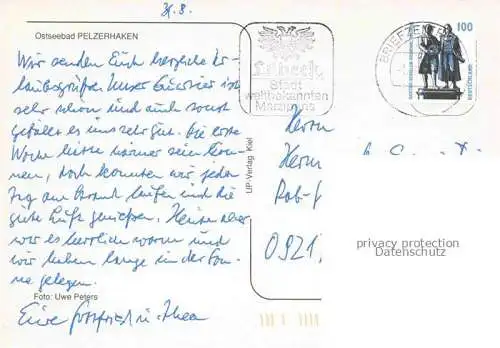 31.8.
Ostseebad PELZERHAKEN
Wir senden Euch herzliche Ur-
laubsgrüße. Unser Quartier ist
sehr schön und auch sonst
gefällt es uns sehr gut. Die erste
Woche hätte wärmer sein kön-
nen, doch konnten wir jeden
Tag am Strand laufen und die
gute Luft genießen. Heute aber
war es herrlich warm und
wir haben lange in der Son-
ne gelegen.
Foto: Uwe Peters
Eure Gottfried u. Thea
UP-Verlag Kiel
Lübeck
Stadt
weltbekannten
Marzipans
BRIEFZEN
100
DEUTSCHLAND
Herrn
Herrn
Rob-
privacy protection
Datenschutz